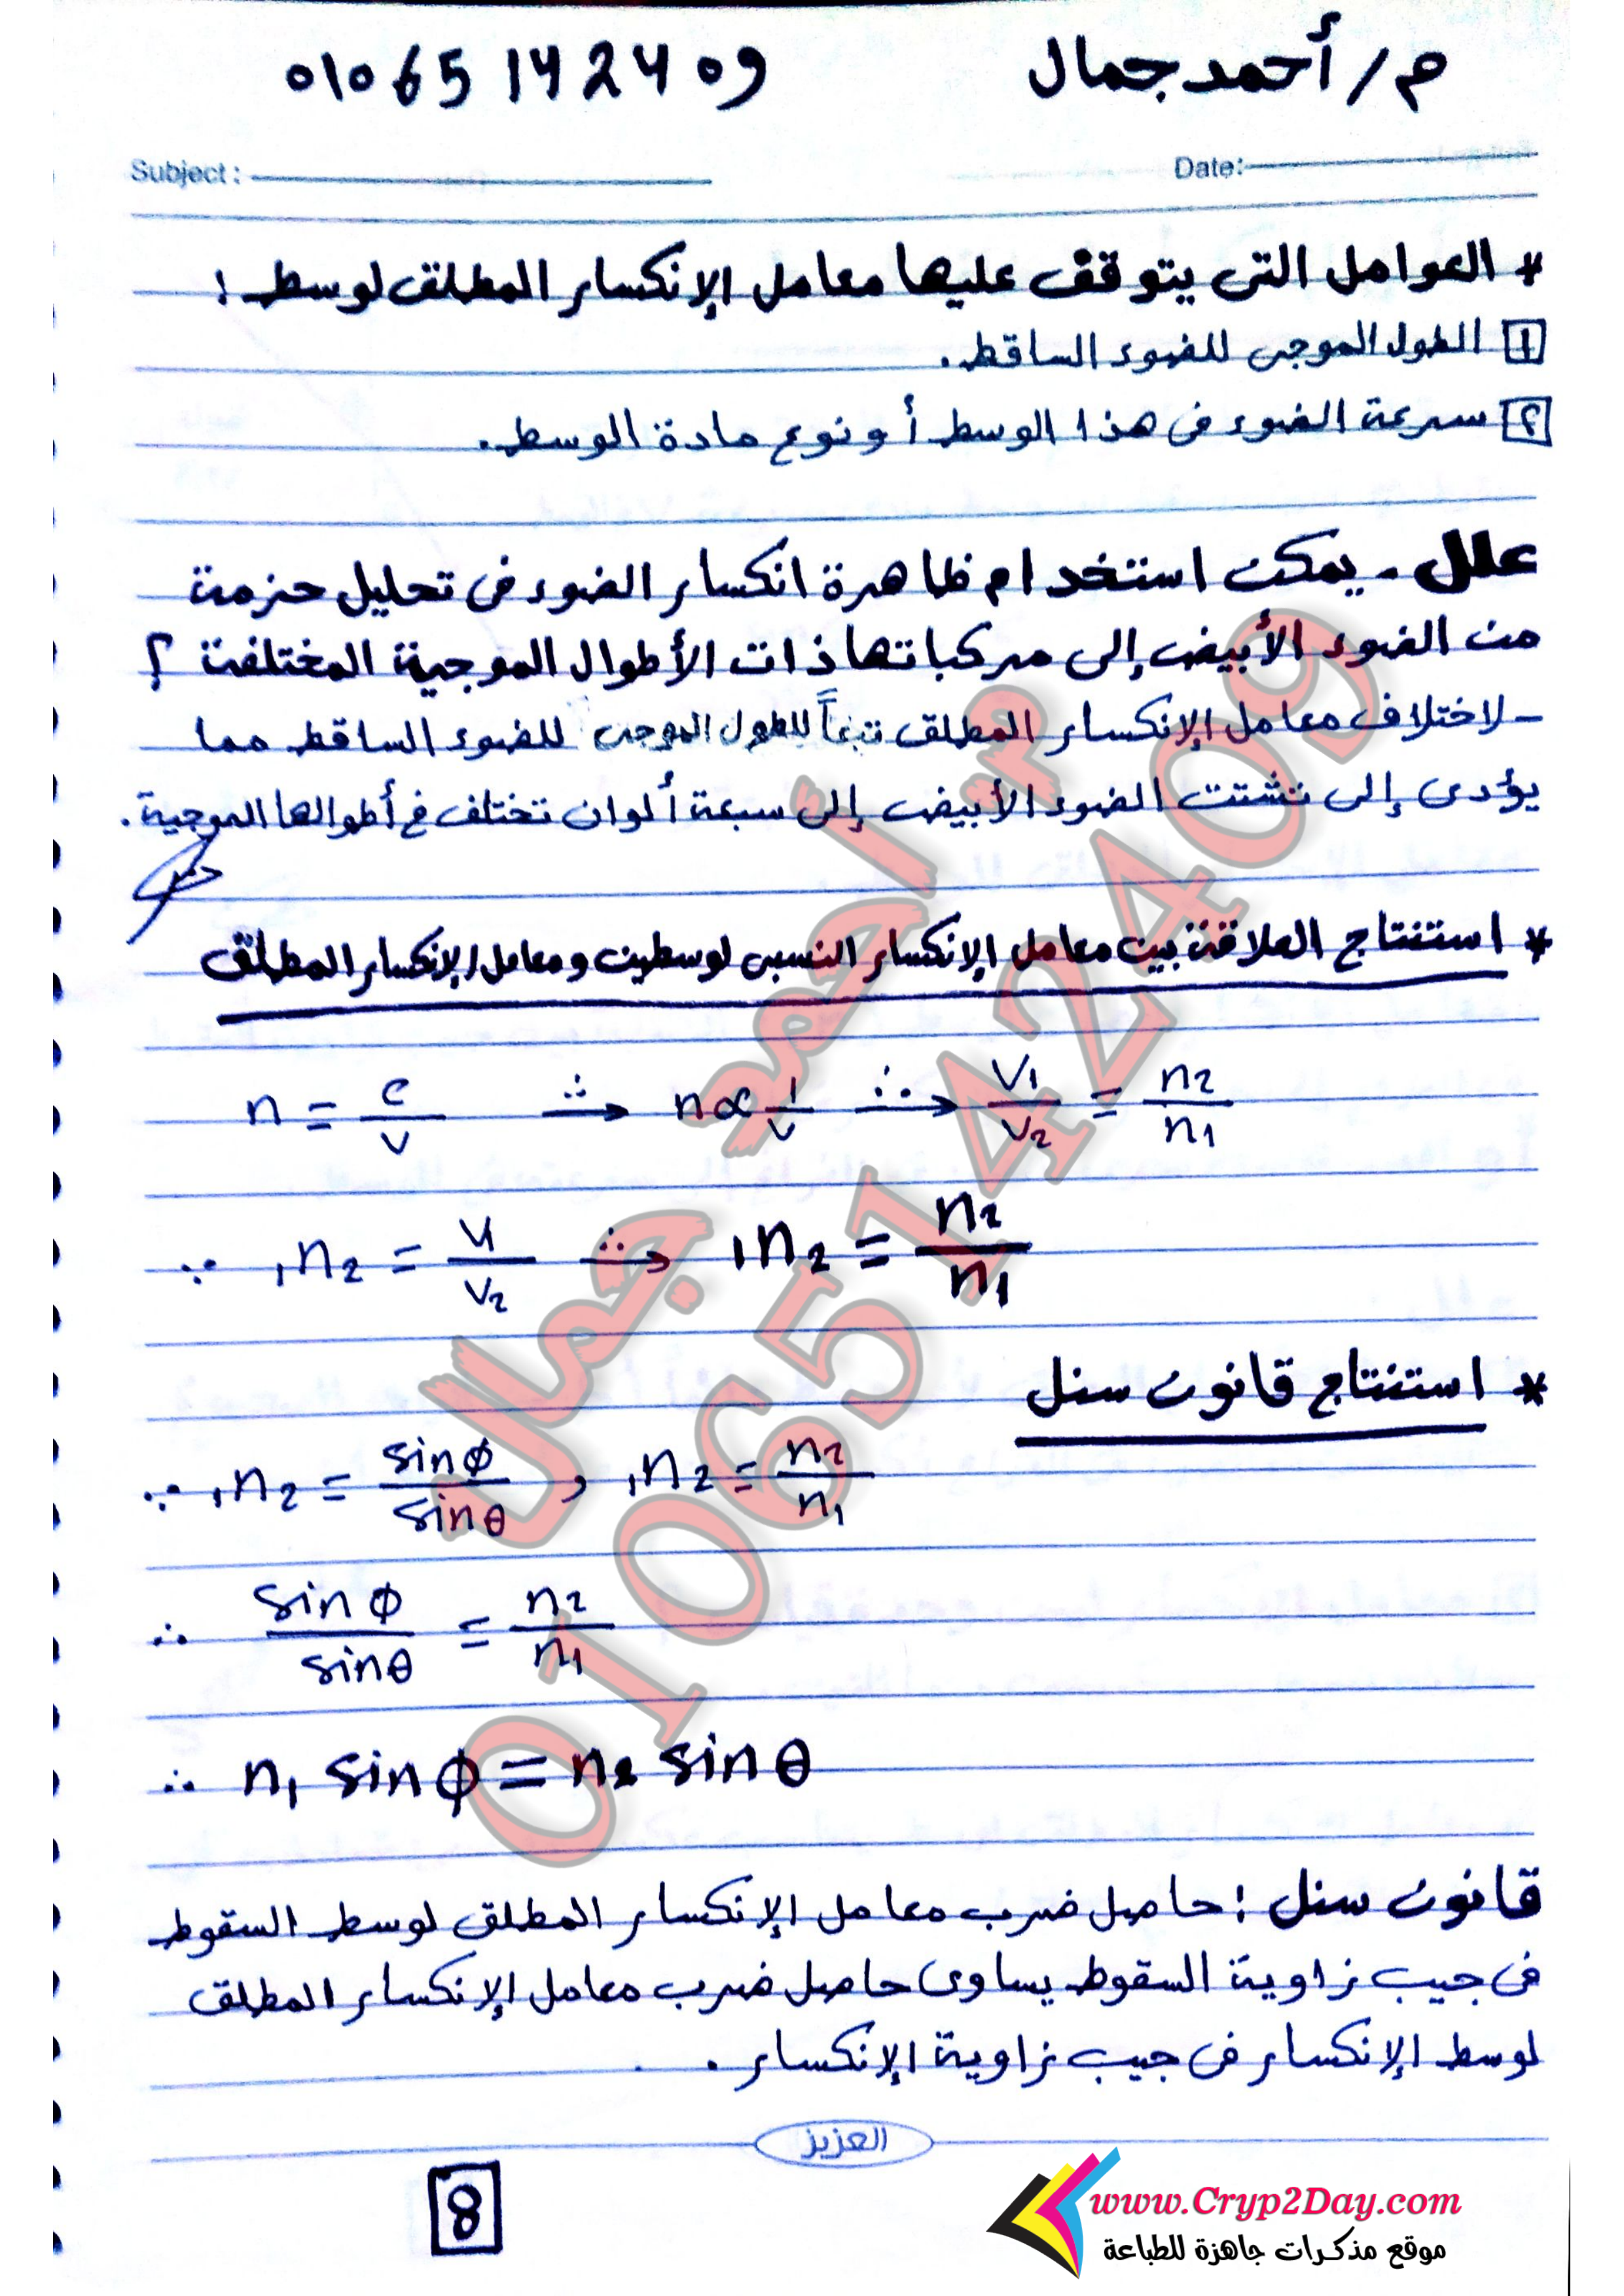 م/ أحمد جمال 01065142409
Subject: Date:
* العوامل التى يتوقف عليها معامل الإنكسار المطلق لوسط :
1 الطول الموجى للضوء الساقط .
٢ سرعة الضوء فى هذا الوسط أو نوع مادة الوسط .
علل - يمكن استخدام ظاهرة انكسار الضوء فى تحليل حزمة
من الضوء الأبيض إلى مركباتها ذات الأطوال الموجية المختلفة ؟
- لاختلاف معامل الإنكسار المطلق تبعاً للطول الموجى للضوء الساقط مما
يؤدى إلى تشتت الضوء الأبيض إلى سبعة ألوان تختلف فى أطوالها الموجية .
* استنتاج العلاقة بين معامل الإنكسار النسبى لوسطين ومعامل الإنكسار المطلق
n = c/v ∴→ n ∝ 1/v ∴→ v1/v2 = n2/n1
∵ 1n2 = v1/v2 ∴→ 1n2 = n2/n1
* استنتاج قانون سنل
∵ 1n2 = sinφ/sinθ , 1n2 = n2/n1
∴ sinφ/sinθ = n2/n1
∴ n1 sinφ = n2 sinθ
قانون سنل : حاصل ضرب معامل الإنكسار المطلق لوسط السقوط
فى جيب زاوية السقوط يساوى حاصل ضرب معامل الإنكسار المطلق
لوسط الإنكسار فى جيب زاوية الإنكسار .
العزيز
8
www.Cryp2Day.com
موقع مذكرات جاهزة للطباعة
م/ أحمد جمال
01065142409